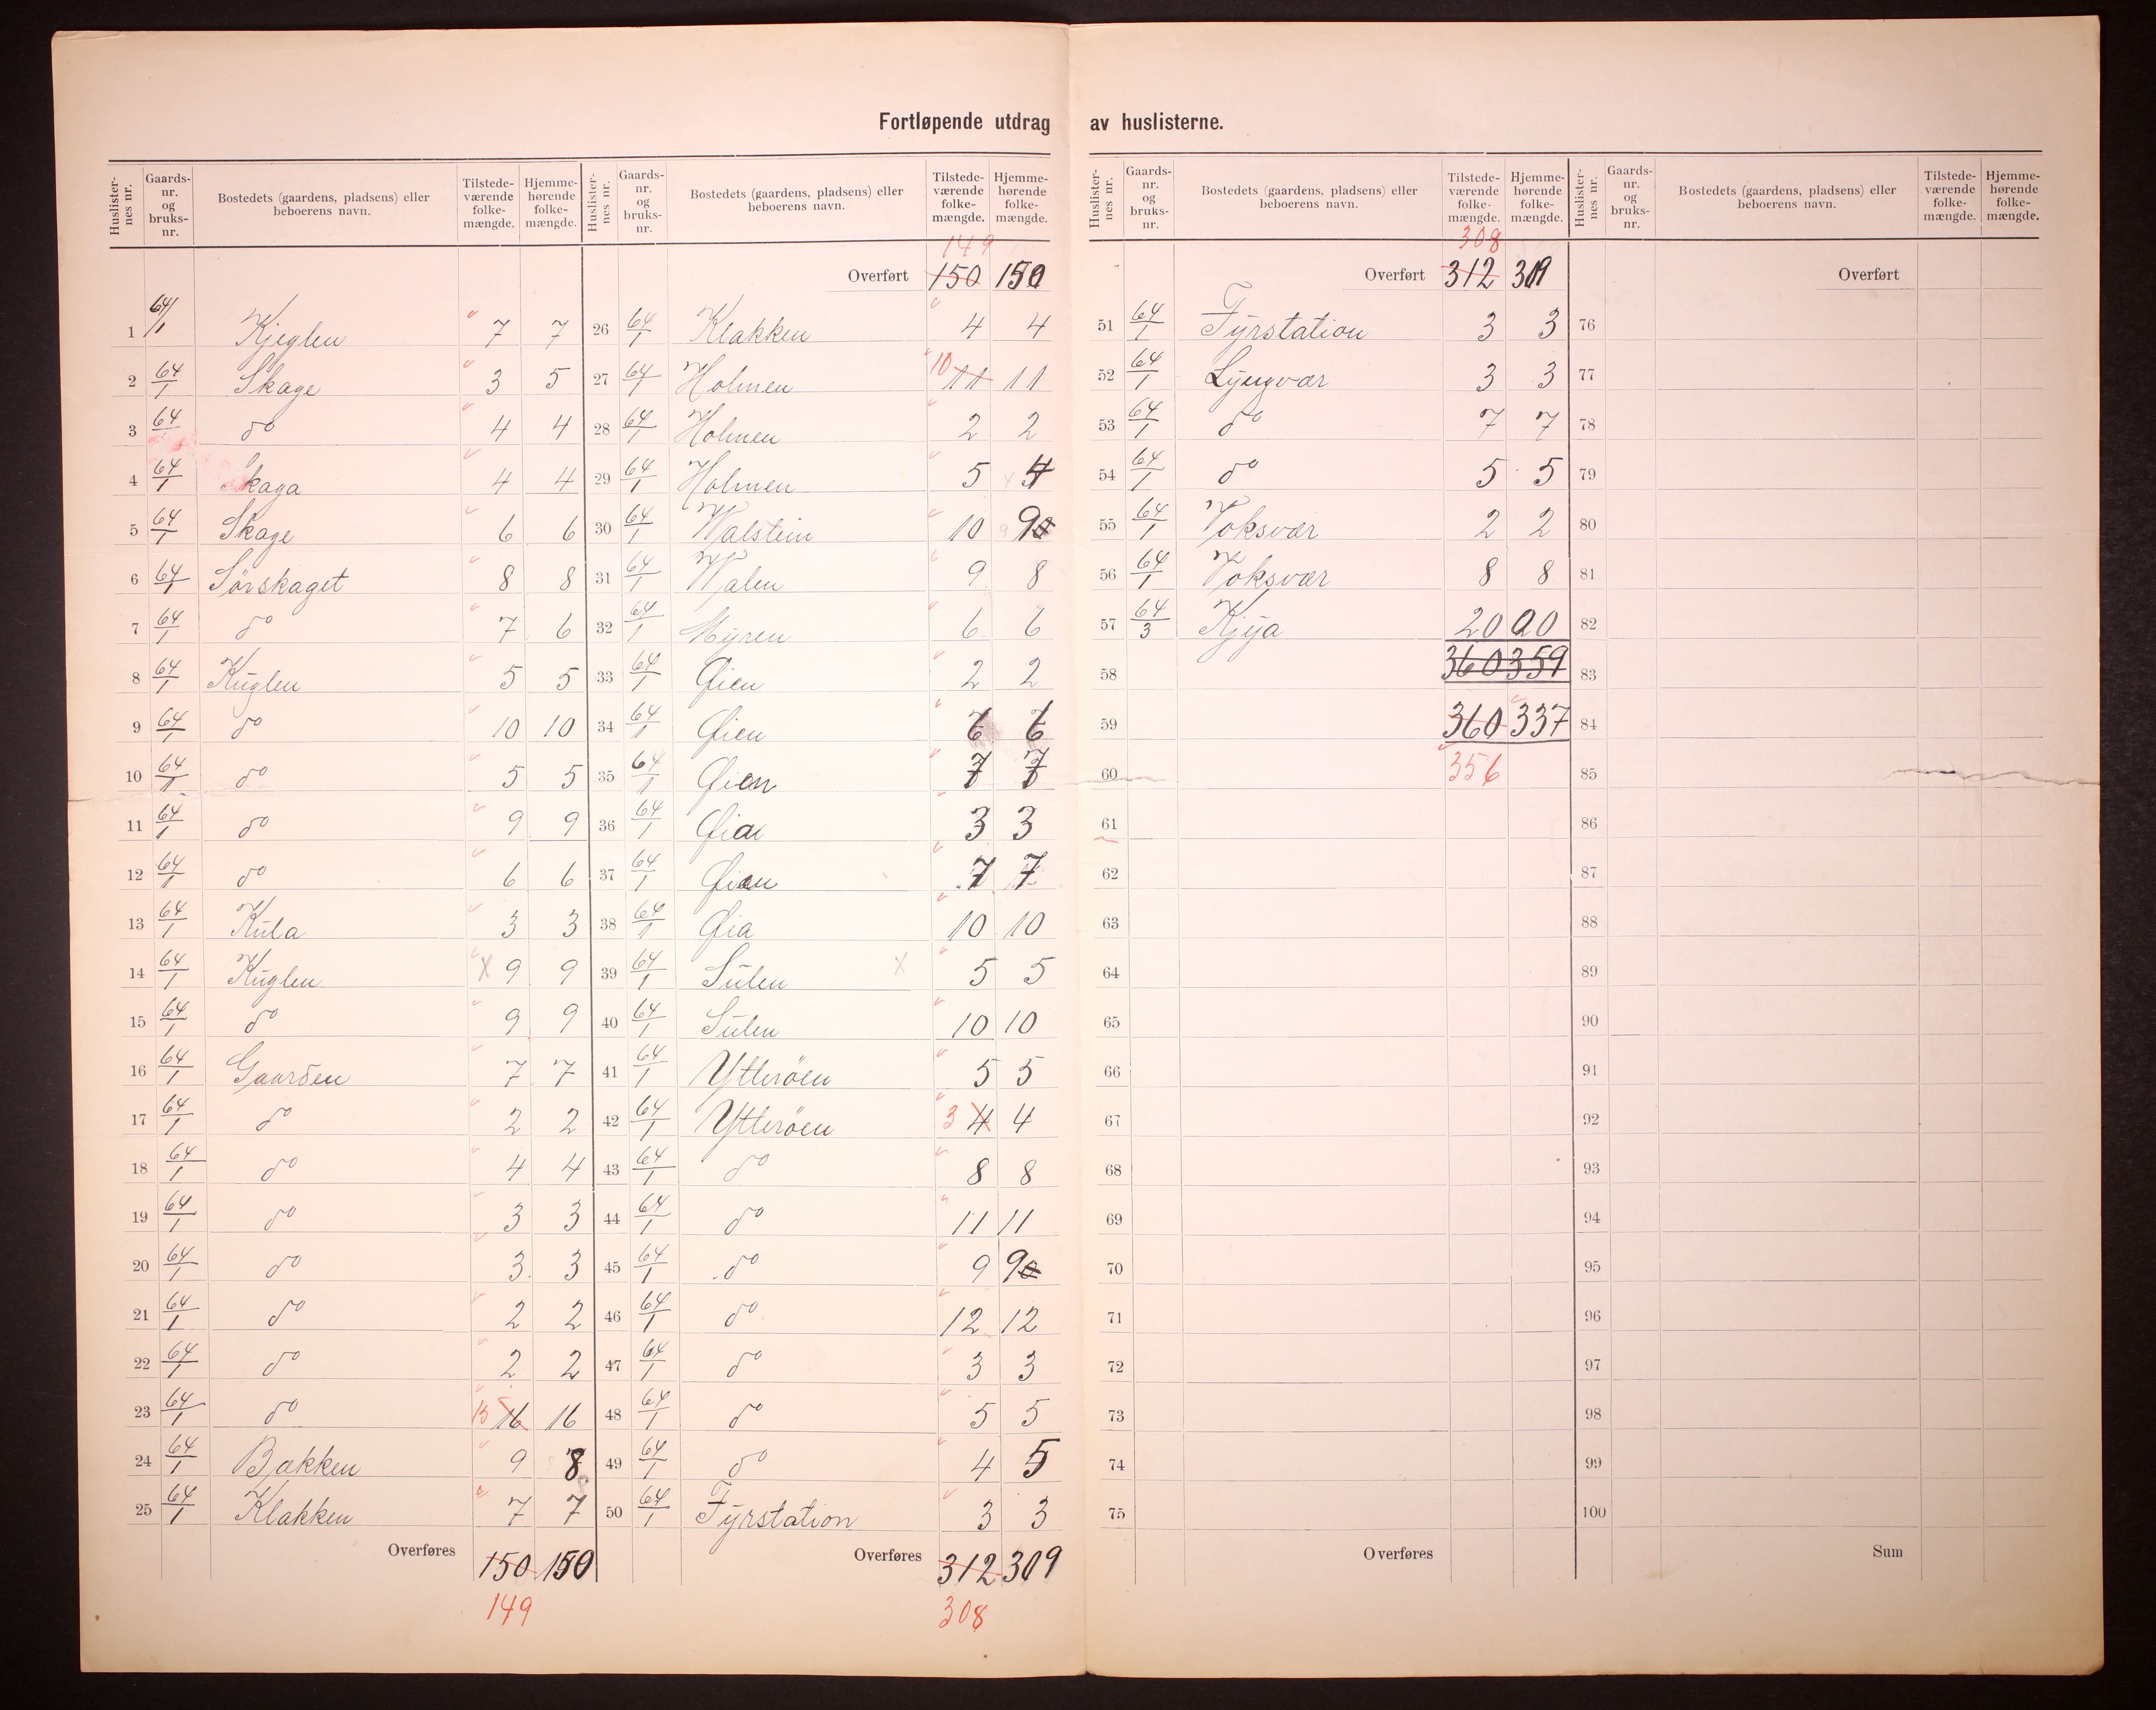 Fortløpende utdrag av huslisterne.
Huslister-nes nr. Gaards-nr. og bruks-nr. Bostedets (gaardens, pladsens) eller beboerens navn. Tilstede-værende folke-mængde. Hjemme-hørende folke-mængde.
1 64/1 Kjeglen 7 7
2 64/1 Skage 3 5
3 64/1 do 4 4
4 64/1 Skaga 4 4
5 64/1 Skage 6 6
6 64/1 Sørskaget 8 8
7 64/1 do 7 6
8 64/1 Kuglen 5 5
9 64/1 do 10 10
10 64/1 do 5 5
11 64/1 do 9 9
12 64/1 do 6 6
13 64/1 Kula 3 3
14 64/1 Kuglen X 9 9
15 64/1 do 9 9
16 64/1 Gaarden 7 7
17 64/1 do 2 2
18 64/1 do 4 4
19 64/1 do 3 3
20 64/1 do 3 3
21 64/1 do 2 2
22 64/1 do 2 2
23 64/1 do 15 16 16
24 64/1 Bakken 9 8
25 64/1 Klakken 7 7
Overføres 150 150
149
Huslister-nes nr. Gaards-nr. og bruks-nr. Bostedets (gaardens, pladsens) eller beboerens navn. Tilstede-værende folke-mængde. Hjemme-hørende folke-mængde.
149
Overført 150 150
26 64/1 Klakken 4 4
27 64/1 Holmen 10 11 11
28 64/1 Holmen 2 2
29 64/1 Holmen 5 4
30 64/1 Walstein 10 9
31 64/1 Walen 9 8
32 64/1 Myren 6 6
33 64/1 Øien 2 2
34 64/1 Øien 6 6
35 64/1 Øien 7 7
36 64/1 Øia 3 3
37 64/1 Øien 7 7
38 64/1 Øia 10 10
39 64/1 Sulen X 5 5
40 64/1 Sulen 10 10
41 64/1 Ytterøen 5 5
42 64/1 Ytterøen 3 4 4
43 64/1 do 8 8
44 64/1 do 11 11
45 64/1 do 9 9
46 64/1 do 12 12
47 64/1 do 3 3
48 64/1 do 5 5
49 64/1 do 4 5
50 64/1 Fyrstation 3 3
Overføres 312 309
308
Huslister-nes nr. Gaards-nr. og bruks-nr. Bostedets (gaardens, pladsens) eller beboerens navn. Tilstede-værende folke-mængde. Hjemme-hørende folke-mængde.
308
Overført 312 309
51 64/1 Fyrstation 3 3
52 64/1 Lyngvær 3 3
53 64/1 do 7 7
54 64/1 do 5 5
55 64/1 Voksvær 2 2
56 64/1 Voksvær 8 8
57 64/3 Kjya 20
58 360 359
59 360 337
60 356
61
62
63
64
65
66
67
68
69
70
71
72
73
74
75
Overføres
Huslister-nes nr. Gaards-nr. og bruks-nr. Bostedets (gaardens, pladsens) eller beboerens navn. Tilstede-værende folke-mængde. Hjemme-hørende folke-mængde.
Overført
76
77
78
79
80
81
82
83
84
85
86
87
88
89
90
91
92
93
94
95
96
97
98
99
100
Sum